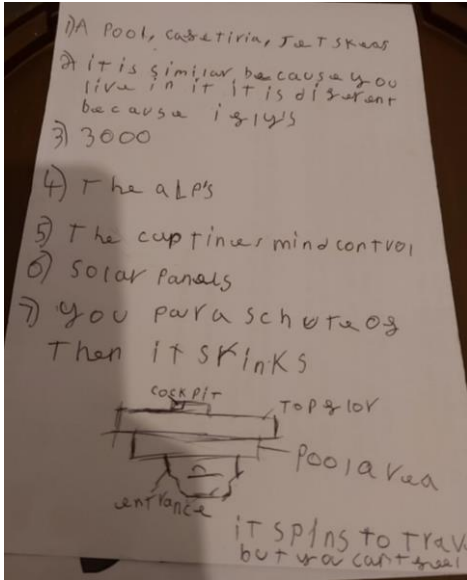 1) A Pool, cafetiria, Jet skeas
2) it is similar because you
live in it it is diferent
because it flys
3) 3000
4) The aLP's
5) The captines mind control
6) Solar Panels
7) you para schute of
Then it skrinks
cockpit
Top flor
Pool area
entrance
it spins to trav
but you cant feel